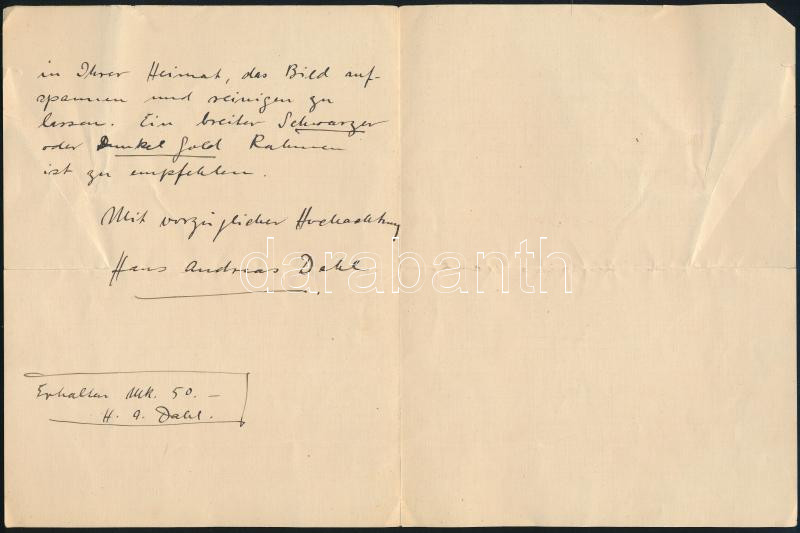 in Ihrer Heimat, das Bild auf-
spannen und reinigen zu
lassen. Ein breiter Schwarzer
oder Dunkel Gold Rahmen
ist zu empfehlen.
Mit vorzüglicher Hochachtung
Hans Andreas Dahl
darabanth
Erhalten Mk. 50.—
H. A. Dahl.